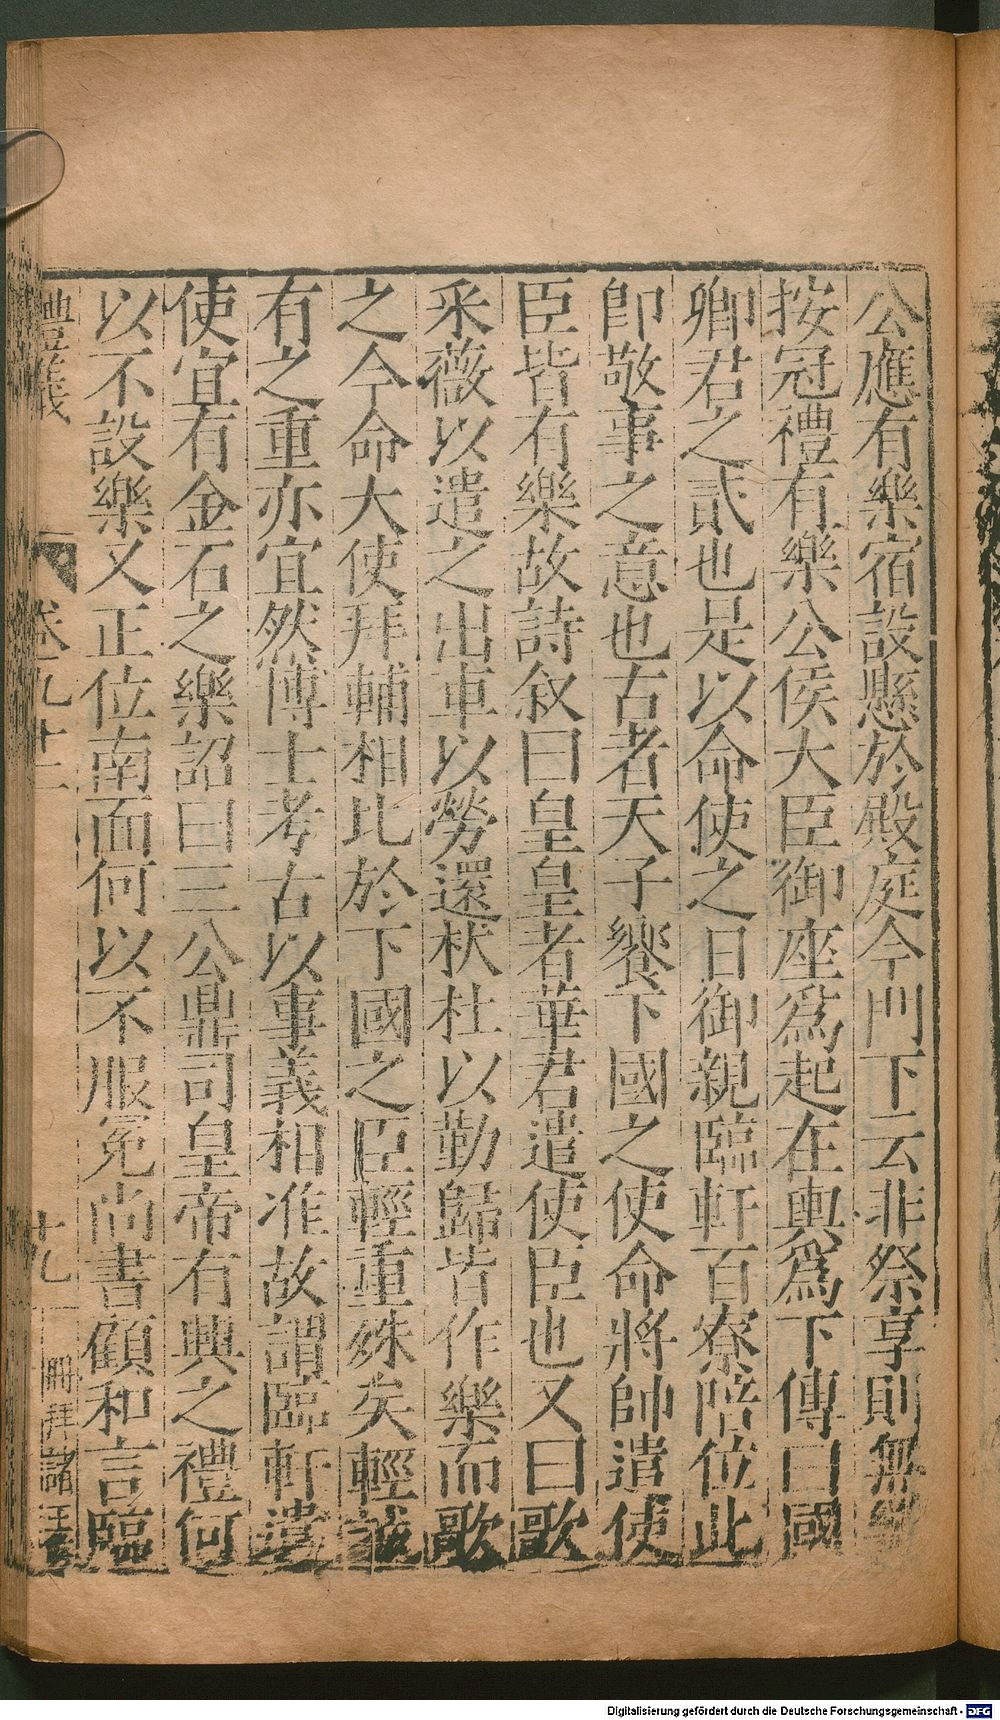 公應有樂宿設懸於殿庭今門下云非祭享則無樂
按冠禮有樂公侯大臣御座爲起在輿爲下傳曰國
卿君之貳也是以命使之日御親臨軒百寮陪位此
即敬事之意也古者天子饗下國之使命將帥遣使
臣皆有樂故詩叙曰皇皇者華君遣使臣也又曰歌
采薇以遣之出車以勞還杕杜以勤歸皆作樂而歌
之今命大使拜輔相比於下國之臣輕重殊矣輕誠
有之重亦宜然博士考古以事義相准故謂臨軒遣
使宜有金石之樂詔曰三公鼎司皇帝有興之禮何
以不設樂又正位南面何以不服冕尚書顧和言臨
禮義 卷九十三 十九 冊拜諸王
Digitalisierung gefördert durch die Deutsche Forschungsgemeinschaft - DFG